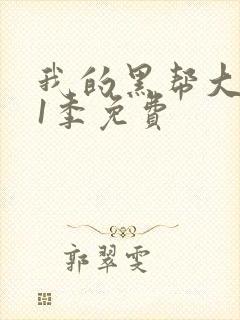 我的黑帮大
1季免费
郭翠雯